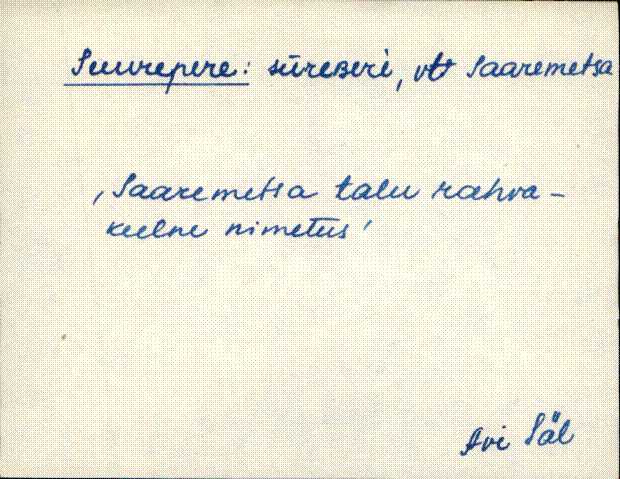 Suurepere: sūreʙeri, vt Saaremetsa
‚Saaremetsa talu rahva-
keelne nimetus'
Avi Säl